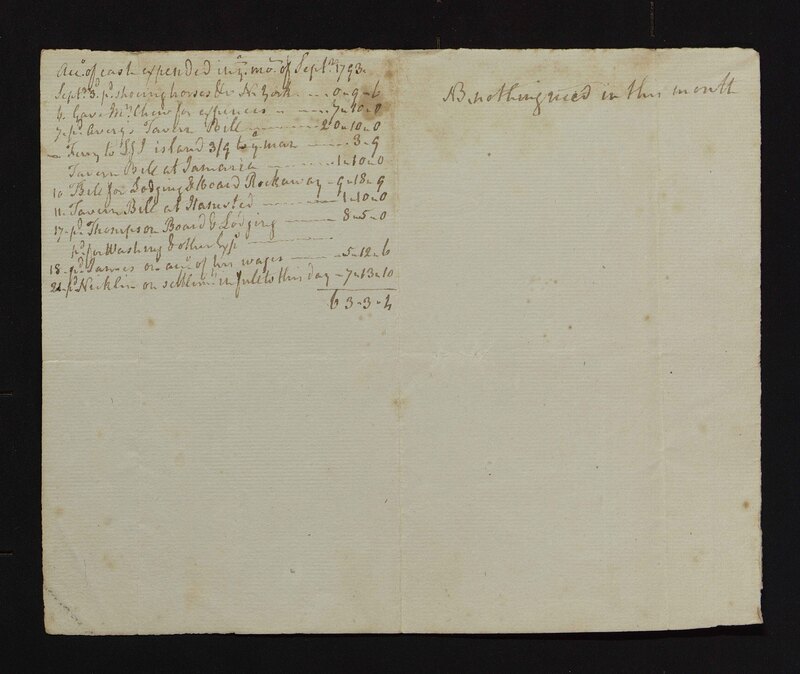 Acct. of cash expended in ye. mo. of Septr. 1793.
Septr. 3. pd. shoeing horses &c N. York - - - 0 - 9 - 6
4. Gave Mr. Chew for expences - - 7 - 10 - 0
7 - pd. Avery's Tavern Bill - 20 - 10 - 0
- Ferry to Island 3/9 to ye. man - 3 - 9
Tavern Bill at Jamaica - 1 - 10 - 0
10 Bill for Lodging & Board Rockaway - 9 - 18 - 9
11. Tavern Bill at Hamsted - 1 - 10 - 0
17 - pd. Thompson Board & Lodging - 8 - 5 - 0
pd. for Washing & other
18 - pd. James on acct. of his wages - 5 - 12 - 6
21 - pd. Nicklin on settlemt. in full to this day - 7 - 13 - 10
63 - 3 - 4
NB nothing in this month